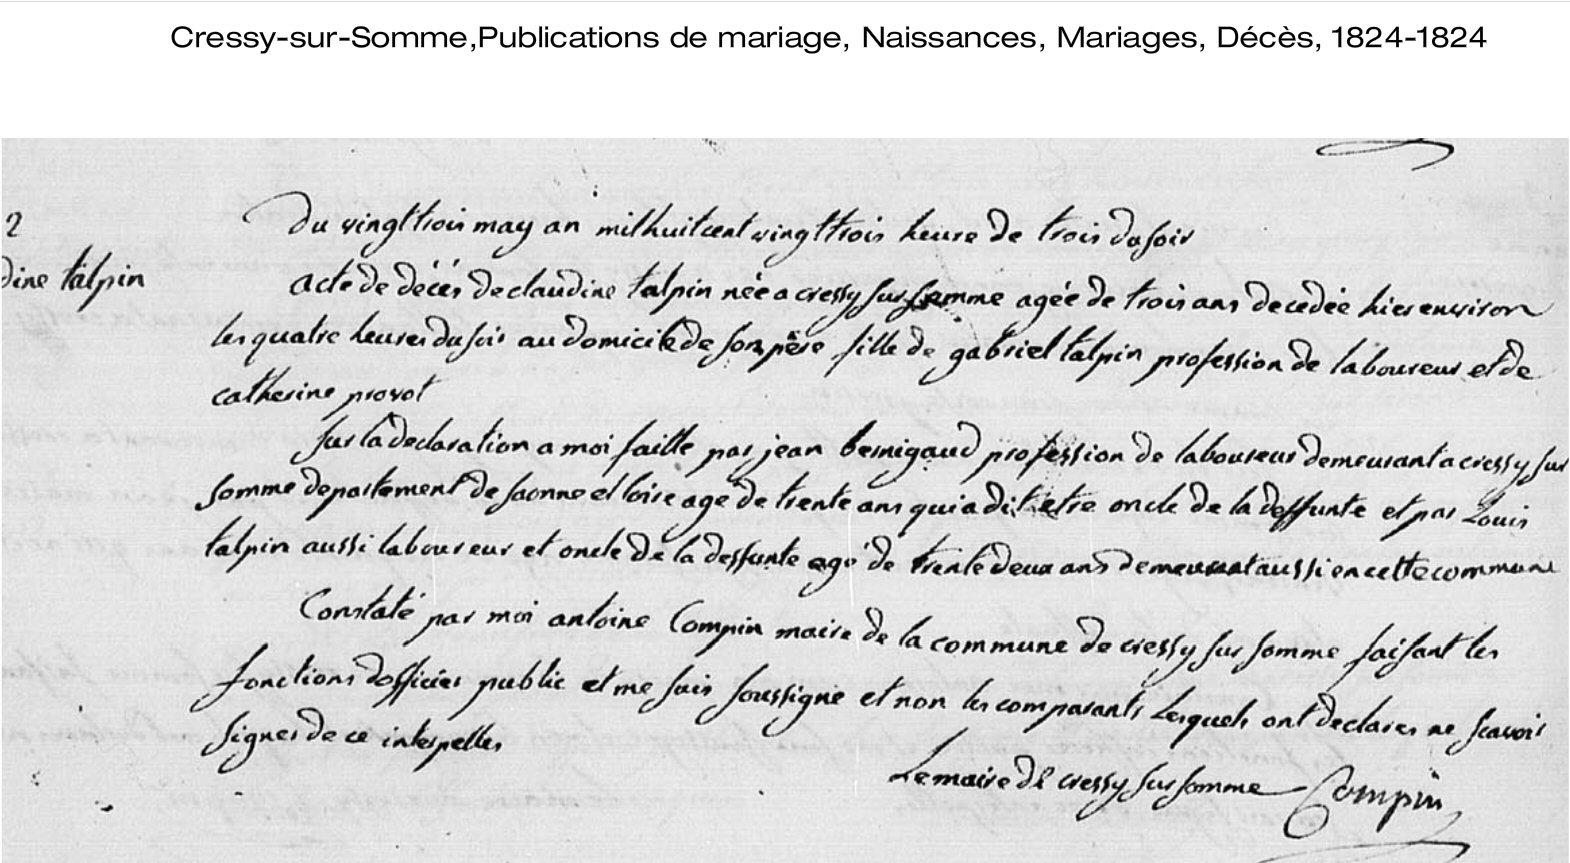 Cressy-sur-Somme,Publications de mariage, Naissances, Mariages, Décès, 1824-1824
2
dine talpin
Du vingttrois may an milhuitcent vingttrois heure de trois du soir
acte de décés de claudine talpin née a cressy sur somme agée de trois ans decedée hier environ
les quatre heures du soir au domicile de son père fille de gabriel talpin profession de laboureur et de
catherine provot
sur la declaration a moi faitte par jean bernigaud profession de laboureur demeurant a cressy sur
somme departement de saonne et loire age de trente ans qui a dit etre oncle de la deffunte et par Louis
talpin aussi laboureur et oncle de la deffunte agé de trente deux ans demeurant aussi en cette commune
Constaté par moi antoine Compin maire de la commune de cressy sur somme faisant les
fonctions dofficier public et me suis soussigné et non les comparants Lesquels ont declarer ne scavoir
signer de ce interpelles
Le maire de cressy sur somme Compin